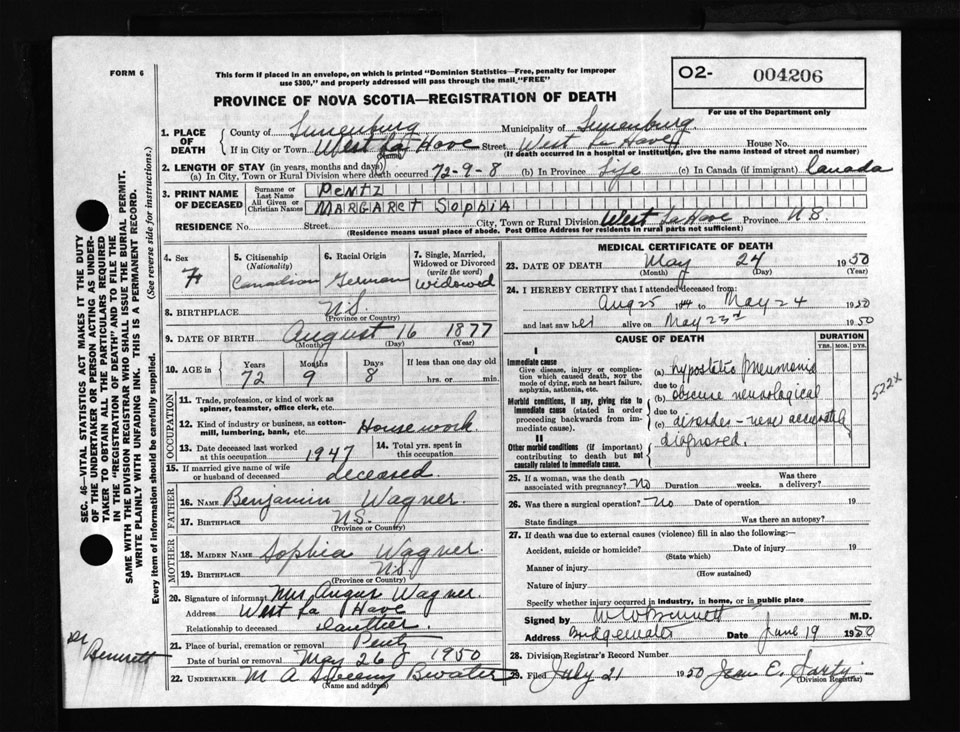 FORM 6
This form if placed in an envelope, on which is printed "Dominion Statistics—Free, penalty for improper
use $300," and properly addressed will pass through the mail "FREE"
O2- 004206
For use of the Department only
PROVINCE OF NOVA SCOTIA—REGISTRATION OF DEATH
1. PLACE OF DEATH
County of Lunenburg Municipality of Lunenburg
If in City or Town West La Have Street West La Have House No.
(Name) (If death occurred in a hospital or institution, give the name instead of street and number)
2. LENGTH OF STAY (in years, months and days)
(a) In City, Town or Rural Division where death occurred 72-9-8 (b) In Province Life (c) In Canada (if immigrant) Canada
3. PRINT NAME OF DECEASED
Surname or Last Name PENTZ
All Given or Christian Names MARGARET SOPHIA
RESIDENCE No. Street City, Town or Rural Division West La Have Province N.S.
(Residence means usual place of abode. Post Office Address for residents in rural parts not sufficient)
4. Sex F
5. Citizenship (Nationality) Canadian
6. Racial Origin German
7. Single, Married, Widowed or Divorced (write the word) Widowed
8. BIRTHPLACE N.S.
(Province or Country)
9. DATE OF BIRTH August 16 1877
(Month) (Day) (Year)
10. AGE in Years 72 Months 9 Days 8 If less than one day old hrs. or min.
OCCUPATION
11. Trade, profession, or kind of work as spinner, teamster, office clerk, etc.
12. Kind of industry or business, as cotton-mill, lumbering, bank, etc. Housework.
13. Date deceased last worked at this occupation 1947
14. Total yrs. spent in this occupation
15. If married give name of wife or husband of deceased deceased
FATHER
16. NAME Benjamin Wagner.
17. BIRTHPLACE N.S.
(Province or Country)
MOTHER
18. MAIDEN NAME Sophia Wagner.
19. BIRTHPLACE N.S.
(Province or Country)
20. Signature of informant Mrs Angus Wagner.
Address West La Have
Relationship to deceased Daughter.
21. Place of burial, cremation or removal Pentz
Date of burial or removal May 26 1950
22. UNDERTAKER M A Sweeny Bwater
(Name and address)
MEDICAL CERTIFICATE OF DEATH
23. DATE OF DEATH May 24 1950
(Month) (Day) (Year)
24. I HEREBY CERTIFY that I attended deceased from:
Aug 25 19 to May 24 1950
and last saw her alive on May 23rd 1950
CAUSE OF DEATH
DURATION
YRS. MOS. DYS.
I
Immediate cause
Give disease, injury or complication which caused death, not the mode of dying, such as heart failure, asphyxia, asthenia, etc.
(a) hypostatic pneumonia
due to
Morbid conditions, if any, giving rise to immediate cause (stated in order proceeding backwards from immediate cause).
(b) obscure neurological
due to
(c) disorder - never accurately
diagnosed.
II
Other morbid conditions (if important) contributing to death but not causally related to immediate cause.
522x
25. If a woman, was the death associated with pregnancy? No Duration weeks. Was there a delivery?
26. Was there a surgical operation? No Date of operation 19
State findings Was there an autopsy?
27. If death was due to external causes (violence) fill in also the following:
Accident, suicide or homicide? Date of injury 19
(State which)
Manner of injury
(How sustained)
Nature of injury
Specify whether injury occurred in industry, in home, or in public place
Signed by Bennett M.D.
Address Bridgewater Date June 19 1950
28. Division Registrar's Record Number
29. Filed July 21 1950 Jean E. Sarty
(Division Registrar)
Dr Bennett
SEC. 46—VITAL STATISTICS ACT MAKES IT THE DUTY
OF THE UNDERTAKER OR PERSON ACTING AS UNDER-
TAKER TO OBTAIN ALL THE PARTICULARS REQUIRED
IN THE "REGISTRATION OF DEATH" AND TO FILE THE
SAME WITH THE DIVISION REGISTRAR WHO SHALL ISSUE THE BURIAL PERMIT.
WRITE PLAINLY WITH UNFADING INK. THIS IS A PERMANENT RECORD.
Every item of information should be carefully supplied. (See reverse side for instructions.)